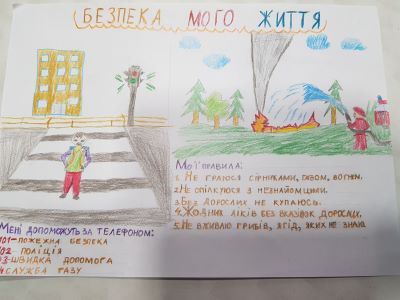 БЕЗПЕКА МОГО ЖИТТЯ
Мої правила:
1. Не граюся сірниками, газом, вогнем.
2. Не спілкуюся з незнайомцими.
3. Без дорослих не купаюсь.
4. Жодних ліків без вказівок дорослих.
5. Не вживаю грибів, ягід, яких не знаю.
Мені допоможуть за телефоном:
101-пожежна безпека
102 поліція
103-швидка допомога
4 служба газу